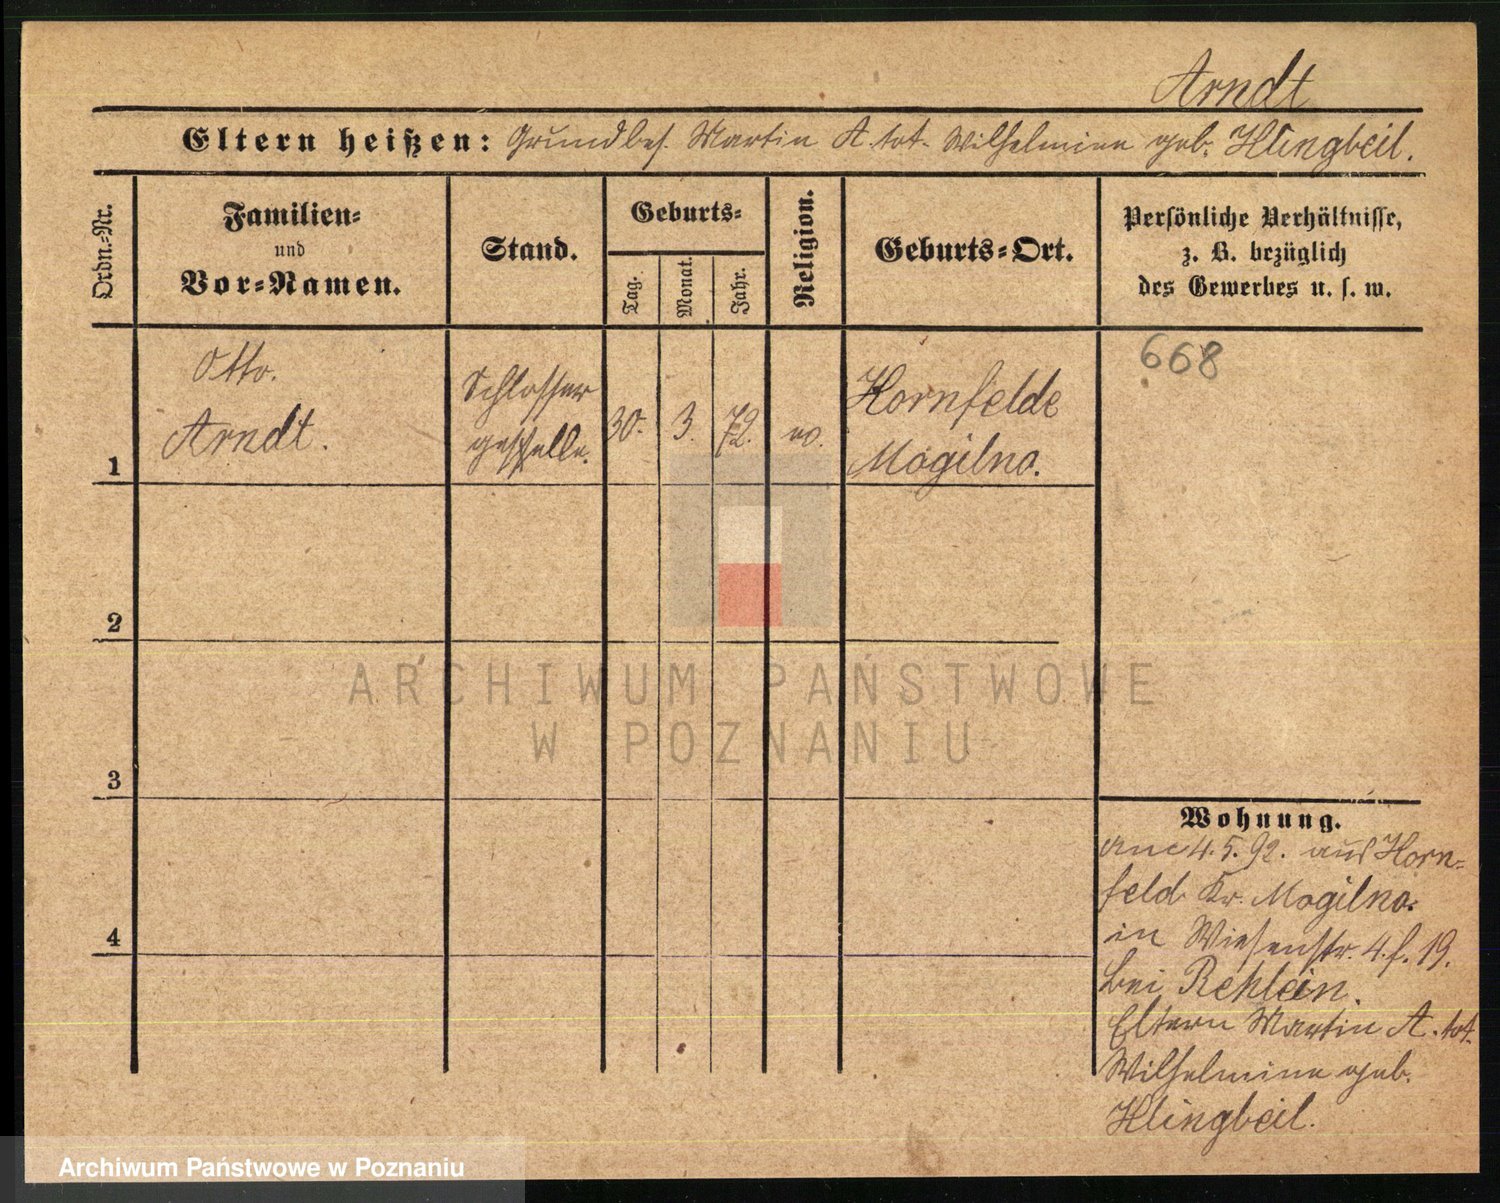 Arndt
Eltern heißen: Grundbes. Martin A. tot. Wilhelmine geb. Klingbeil.
Ordn.-Nr.
Familien-
und
Vor-Namen.
Stand.
Geburts-
Tag.
Monat.
Jahr.
Religion.
Geburts-Ort.
Persönliche Verhältnisse,
z. B. bezüglich
des Gewerbes u. s. w.
668
1
Otto.
Arndt.
Schlosser
geselle.
30.
3.
72.
ev.
Kornfelde
Mogilno.
2
3
4
ARCHIWUM PAŃSTWOWE
W POZNANIU
Wohnung.
4.5.92. aus Korn-
feld Kr. Mogilno.
in Wiesenstr. 4. f. 19.
bei Rehlein.
Eltern Martin A. tot.
Wilhelmine geb.
Klingbeil.
Archiwum Państwowe w Poznaniu